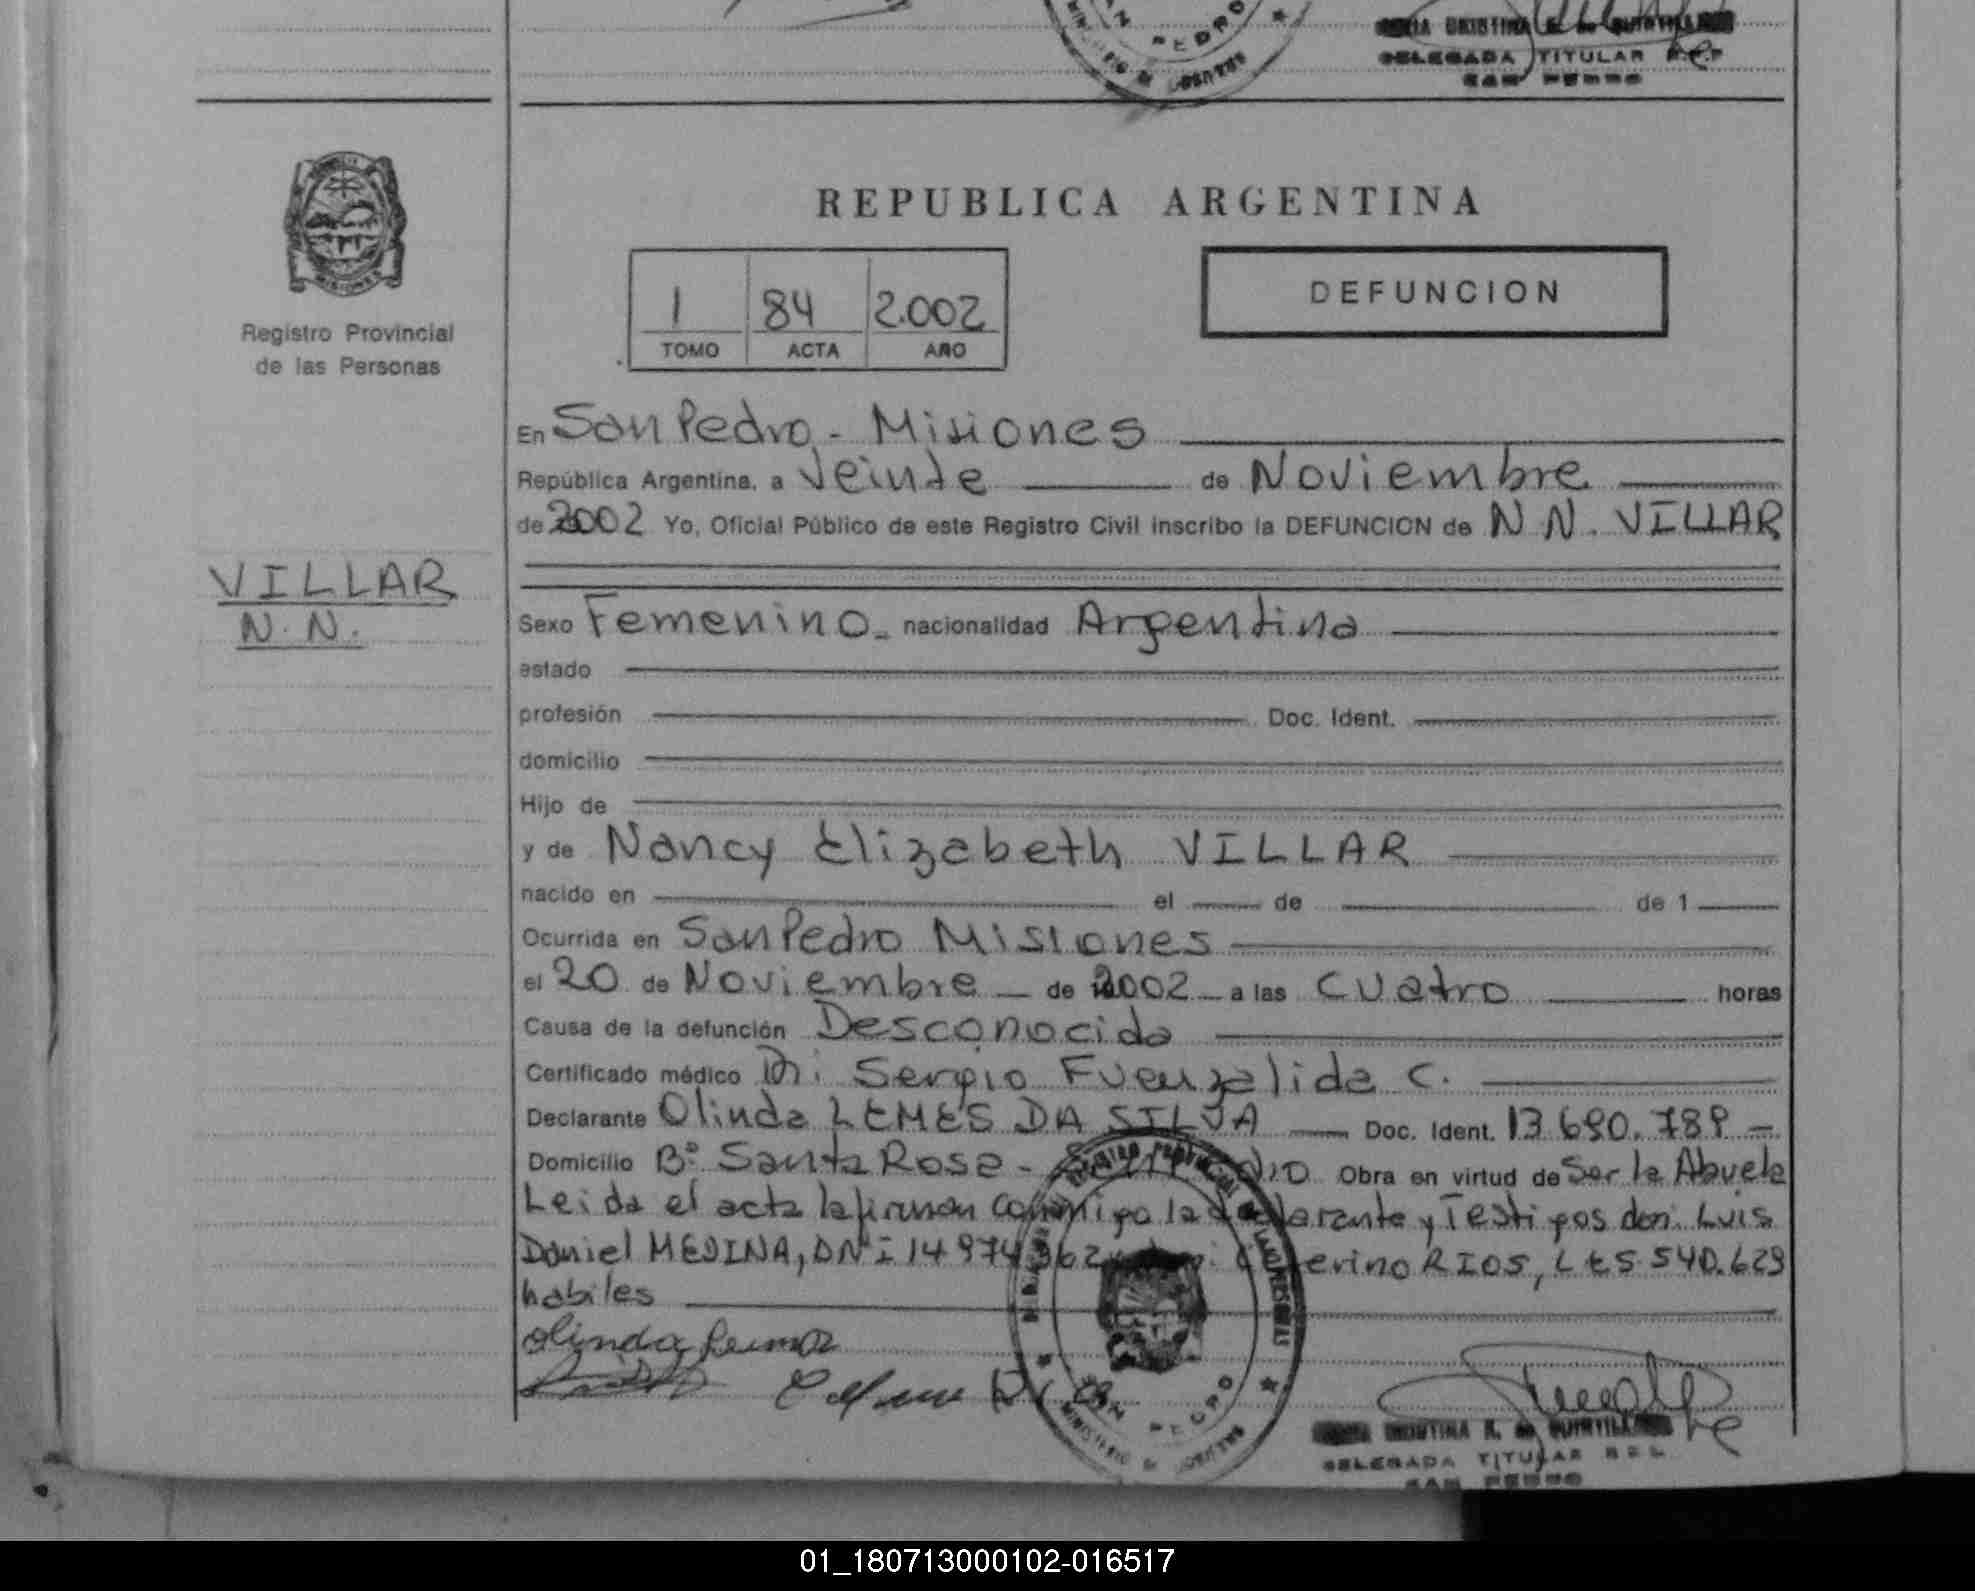 DELEGADA TITULAR
SAN PEDRO
REPUBLICA ARGENTINA
1 84 2.002
TOMO ACTA AÑO
DEFUNCION
MISIONES
Registro Provincial
de las Personas
En San Pedro - Misiones
República Argentina, a Veinte de Noviembre
de 2002 Yo, Oficial Público de este Registro Civil inscribo la DEFUNCION de N N. VILLAR
VILLAR
N. N.
Sexo Femenino - nacionalidad Argentina
estado
profesión Doc. Ident.
domicilio
Hijo de
y de Nancy Elizabeth VILLAR
nacido en el de de 1
Ocurrida en San Pedro Misiones
el 20 de Noviembre de 2002 a las Cuatro horas
Causa de la defunción Desconocida
Certificado médico Dr: Sergio Fuenzalida C.
Declarante Olinda LEMES DA SILVA Doc. Ident. 13.690.789
Domicilio B° Santa Rosa - Obra en virtud de Ser la Abuela
Leida el acta la firman conmigo la declarante y Testigos don: Luis
Daniel MEDINA, DNI 14 974 362 RIOS, LE 5.540.629
habiles
Olinda
SAN PEDRO
DELEGADA TITULAR
SAN PEDRO
01_180713000102-016517